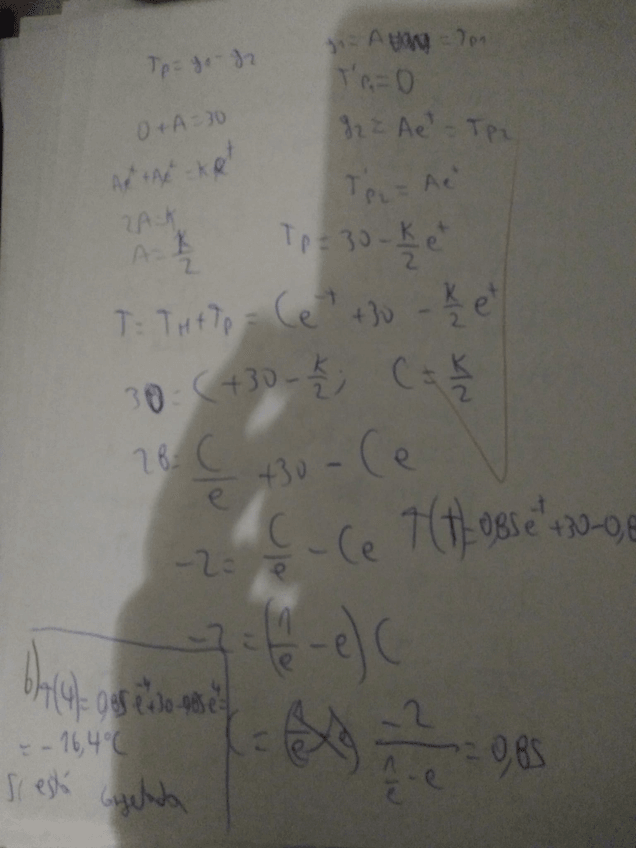 Tp = y1 - y2
y1 = A = Tp1
T'p1 = 0
0 + A = 30
y2 = Ae^t = Tp2
Ae^t + Ae^t = Ke^t
T'p2 = Ae^t
2A = K
A = K/2
Tp = 30 - K/2 e^t
T = TH + Tp = Ce^-t + 30 - K/2 e^t
30 = C + 30 - K/2; C = K/2
28 = C/e + 30 - Ce
-2 = C/e - Ce
T(t) = 0,85e^-t + 30 - 0,8
-2 = (1/e - e) C
b) T(4) = 0,85 e^-4 + 30 - 0,85 e^4 =
= -16,4°C
C = -2/(1/e - e) = 0,85
Si está